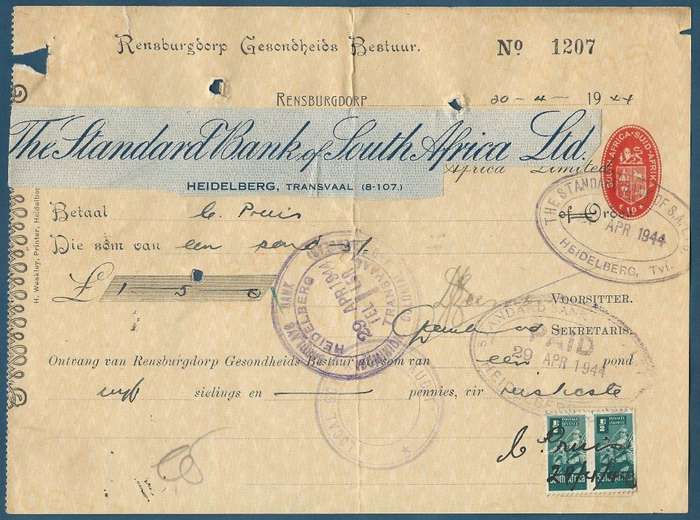 Rensburgdorp Gesondheids Bestuur. No 1207
Rensburgdorp 20-4-1944
The Standard Bank of South Africa Ltd.
Africa Limited
HEIDELBERG, TRANSVAAL (8-107.)
SOUTH AFRICA · SUID-AFRIKA
THE STANDARD BANK OF S.A. LTD
APR 1944
HEIDELBERG, Tvl.
Betaal C. Pruis of Order
Die som van een pond 5/-
£ 1 5 0
HEIDELBERG
TRANSVAAL
29 APR 1944
VOORSITTER.
SEKRETARIS.
STANDARD BANK
PAID
29 APR 1944
Ontvang van Rensburgdorp Gesondheids Bestuur die som van een pond
vyf sielings en — pennies, vir reiskoste
C. Pruis
H. Weakley, Printer, Heidelberg